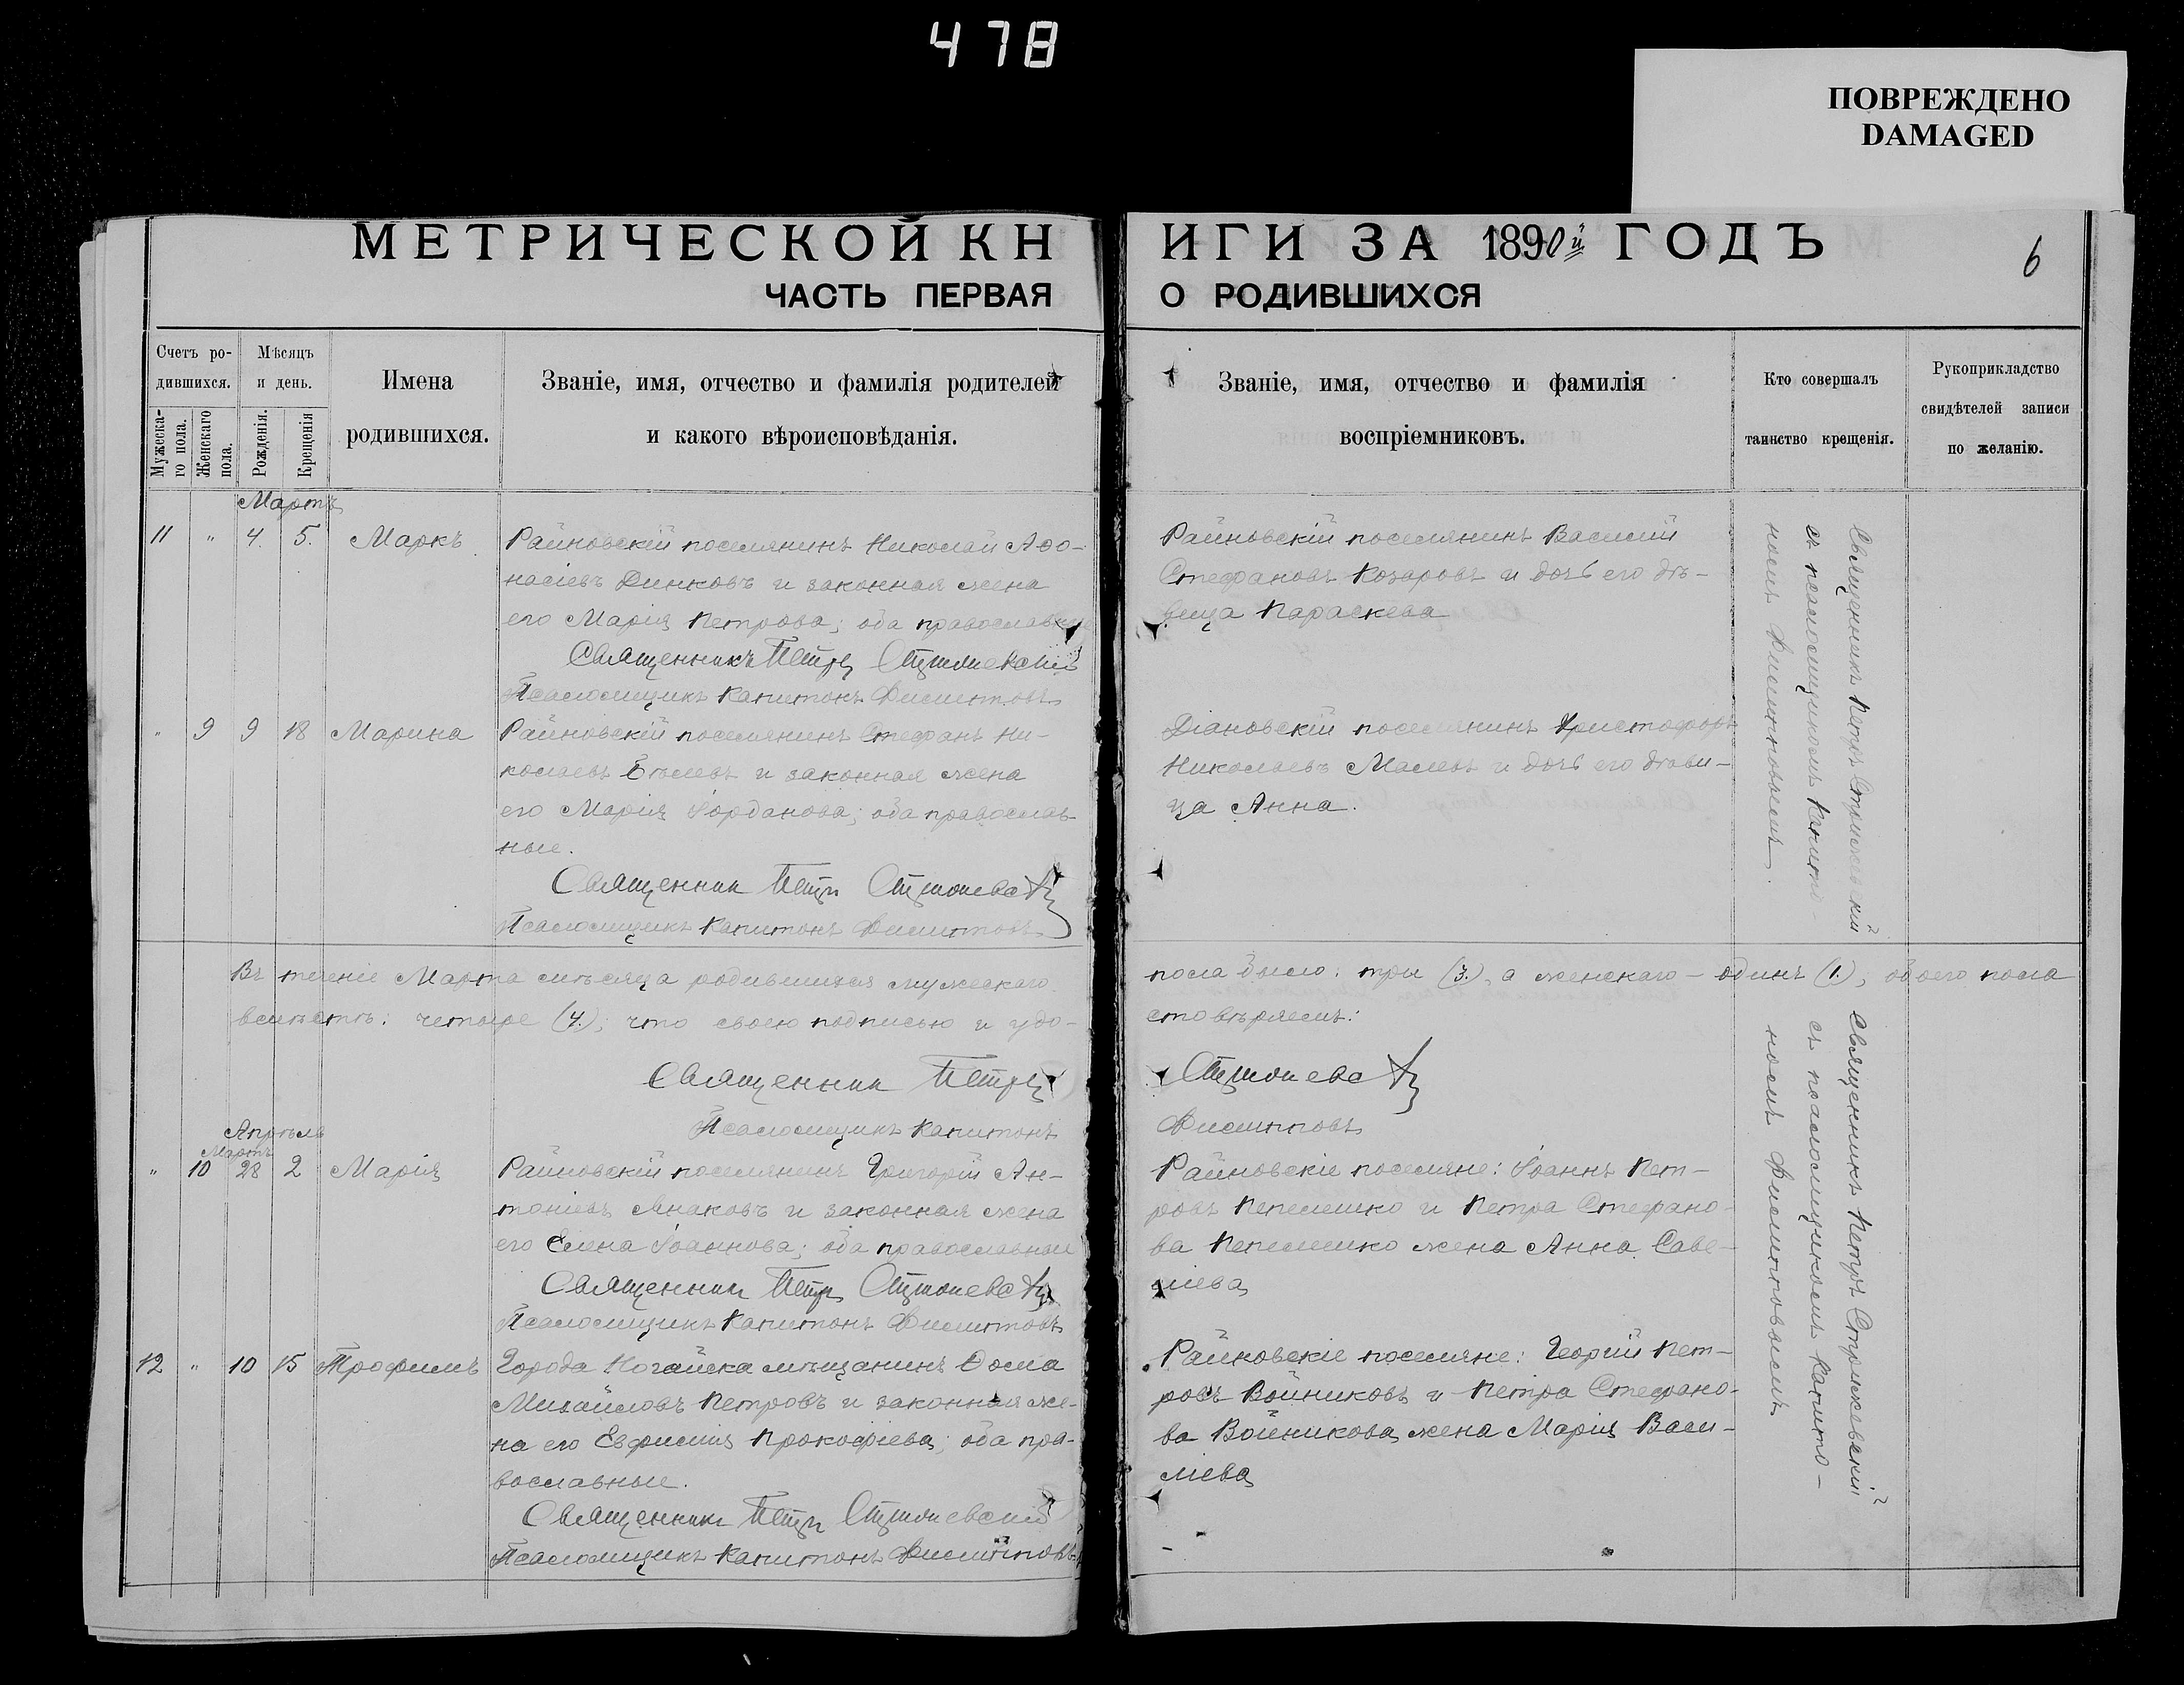 478
ПОВРЕЖДЕНО
DAMAGED
МЕТРИЧЕСКОЙ КН
ИГИ ЗА 1890й ГОДЪ
6
ЧАСТЬ ПЕРВАЯ
О РОДИВШИХСЯ
Счетъ ро-
дившихся.
Мужеска-
го пола.
Женскаго
пола.
Мѣсяцъ
и день.
Рожденія.
Крещенія
Имена
родившихся.
Званіе, имя, отчество и фамилія родителей
и какого вѣроисповѣданія.
Званіе, имя, отчество и фамилія
воспріемниковъ.
Кто совершалъ
таинство крещенія.
Рукоприкладство
свидѣтелей записи
по желанію.
Мартъ
11 " 4. 5. Маркъ
Райновскій поселянинъ Николай Афо-
насіевъ Динковъ и законная жена
его Марія Петрова; оба православные
Священникъ Петръ Стрижевскій
Псаломщикъ Капитонъ Филипповъ
Райновскій поселянинъ Василій
Стефановъ Козаровъ и дочь его дѣ-
вица Параскева
Священникъ Петръ Стрижевскій
съ псаломщикомъ Капито-
номъ Филипповымъ.
" 9 9 18 Марина
Райновскій поселянинъ Стефанъ Ни-
колаевъ и законная жена
его Марія Іорданова; оба православ-
ные.
Священник Петр Стрижевскій
Псаломщикъ Капитонъ Филипповъ
Діановскій поселянинъ Христофоръ
Николаевъ Малевъ и дочь его дѣви-
ца Анна.
Въ теченіе Марта мѣсяца родившихся мужескаго
пола было: три (3.), а женскаго – одинъ (1.), обоего пола
всѣхъ: четыре (4.); что своею подписью и удо-
стовѣряемъ:
Священник Петръ
Стрижевскій
Псаломщикъ Капитонъ
Филипповъ
Апрѣль
Мартъ
" 10 28 2 Марія
Райновскій поселянинъ Григорій Ан-
тоніевъ и законная жена
его Елена Іоаннова; оба православные
Священник Петръ Стрижевскій
Псаломщикъ Капитонъ Филипповъ
Райновскіе поселяне: Іоаннъ Пет-
ровъ Пепелешко и Петра Стефано-
ва Пепелешко жена Анна Саве-
ліева
Священникъ Петръ Стрижевскій
съ псаломщикомъ Капито-
номъ Филипповымъ
12 " 10 15 Трофимъ
Города Ногайска мѣщанинъ Ѳома
Михайловъ Петровъ и законная же-
на его Евфимія Прокофіева; оба пра-
вославные.
Священник Петръ Стрижевскій
Псаломщикъ Капитонъ Филипповъ
Райновскіе поселяне: Георгій Пет-
ровъ Войниковъ и Петра Стефано-
ва Войникова жена Марія Васи-
ліева